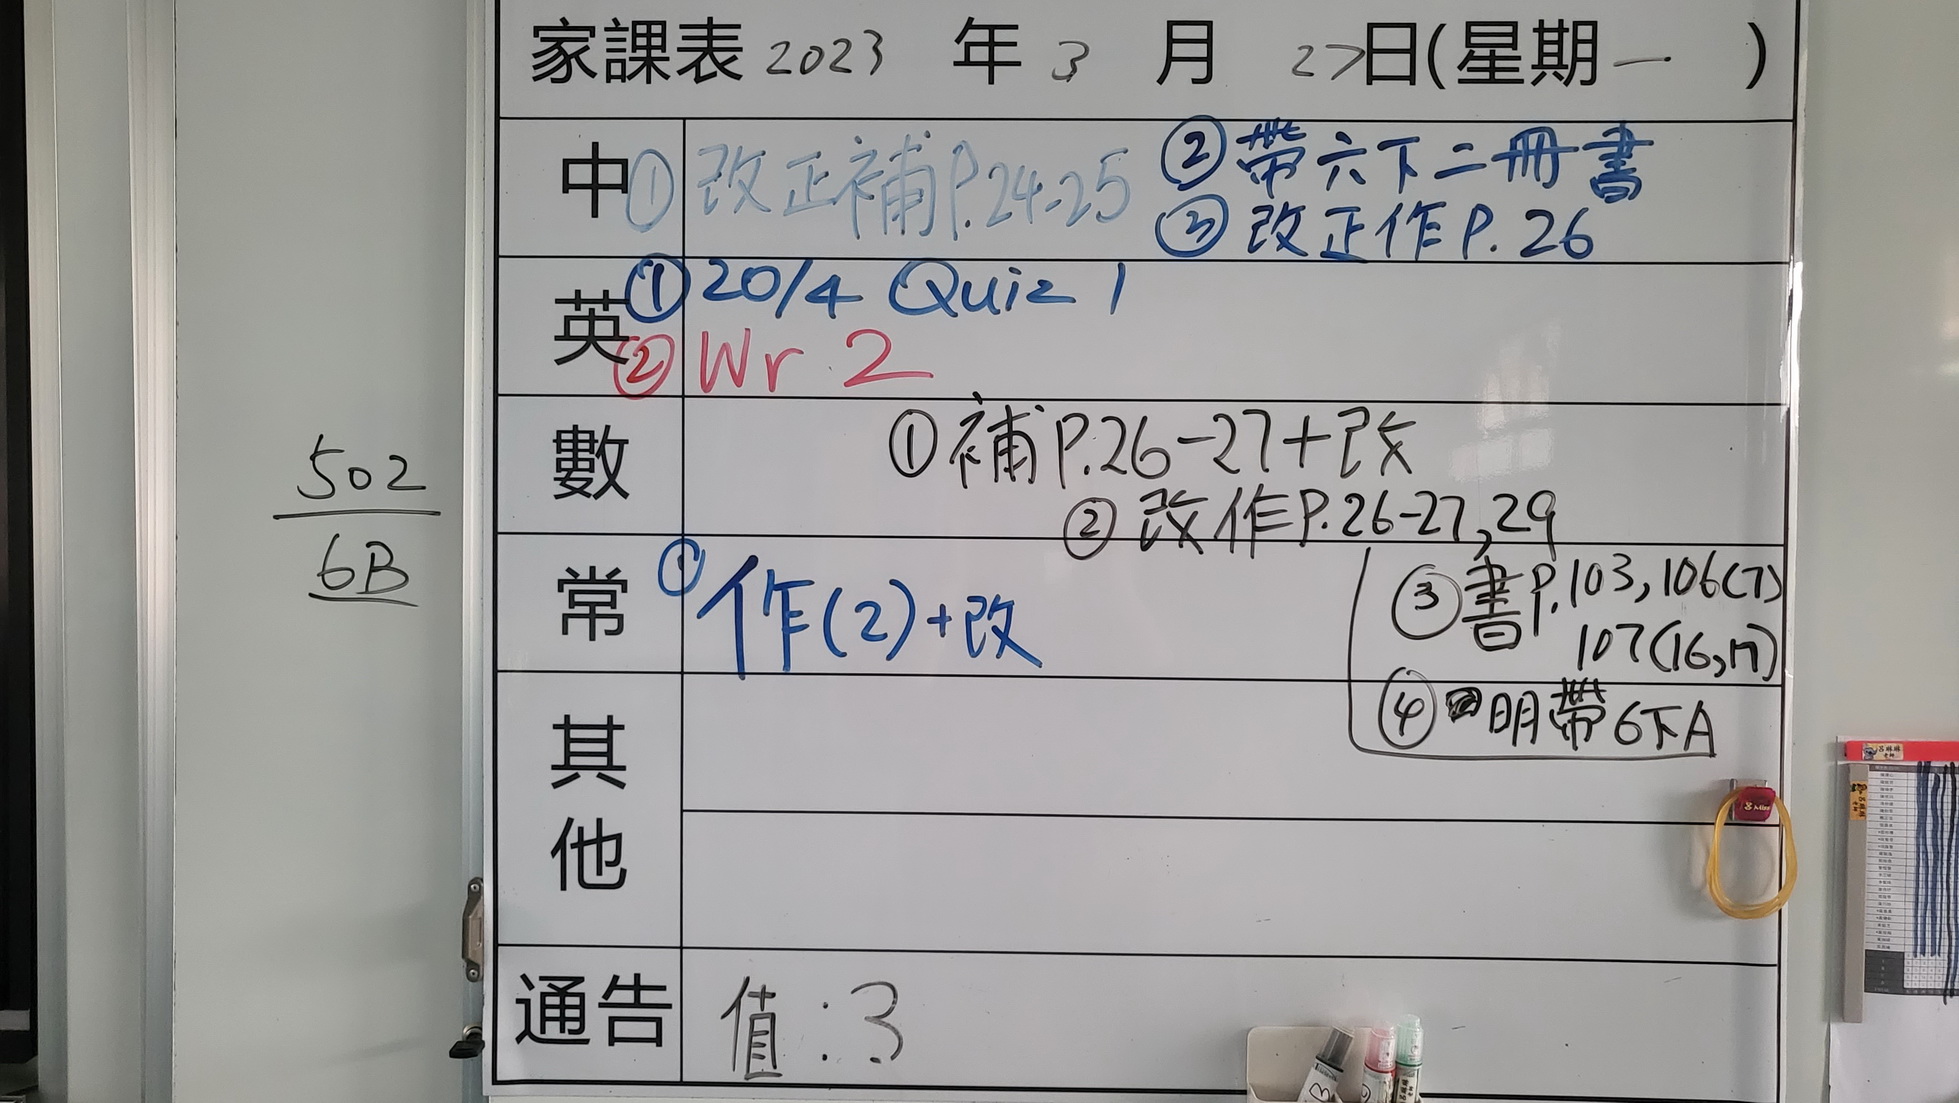 家課表 2023 年 3 月 27日(星期一)
中 ① 改正補P.24-25
② 帶六下二冊書
③ 改正作P.26
英 ① 20/4 Quiz 1
② Wr 2
數 ① 補P.26-27+改
② 改作P.26-27,29
③ 書P.103,106(7)
107(16,17)
④ 明帶6下A
常 ① 作(2)+改
其他
通告 值:3
502
6B